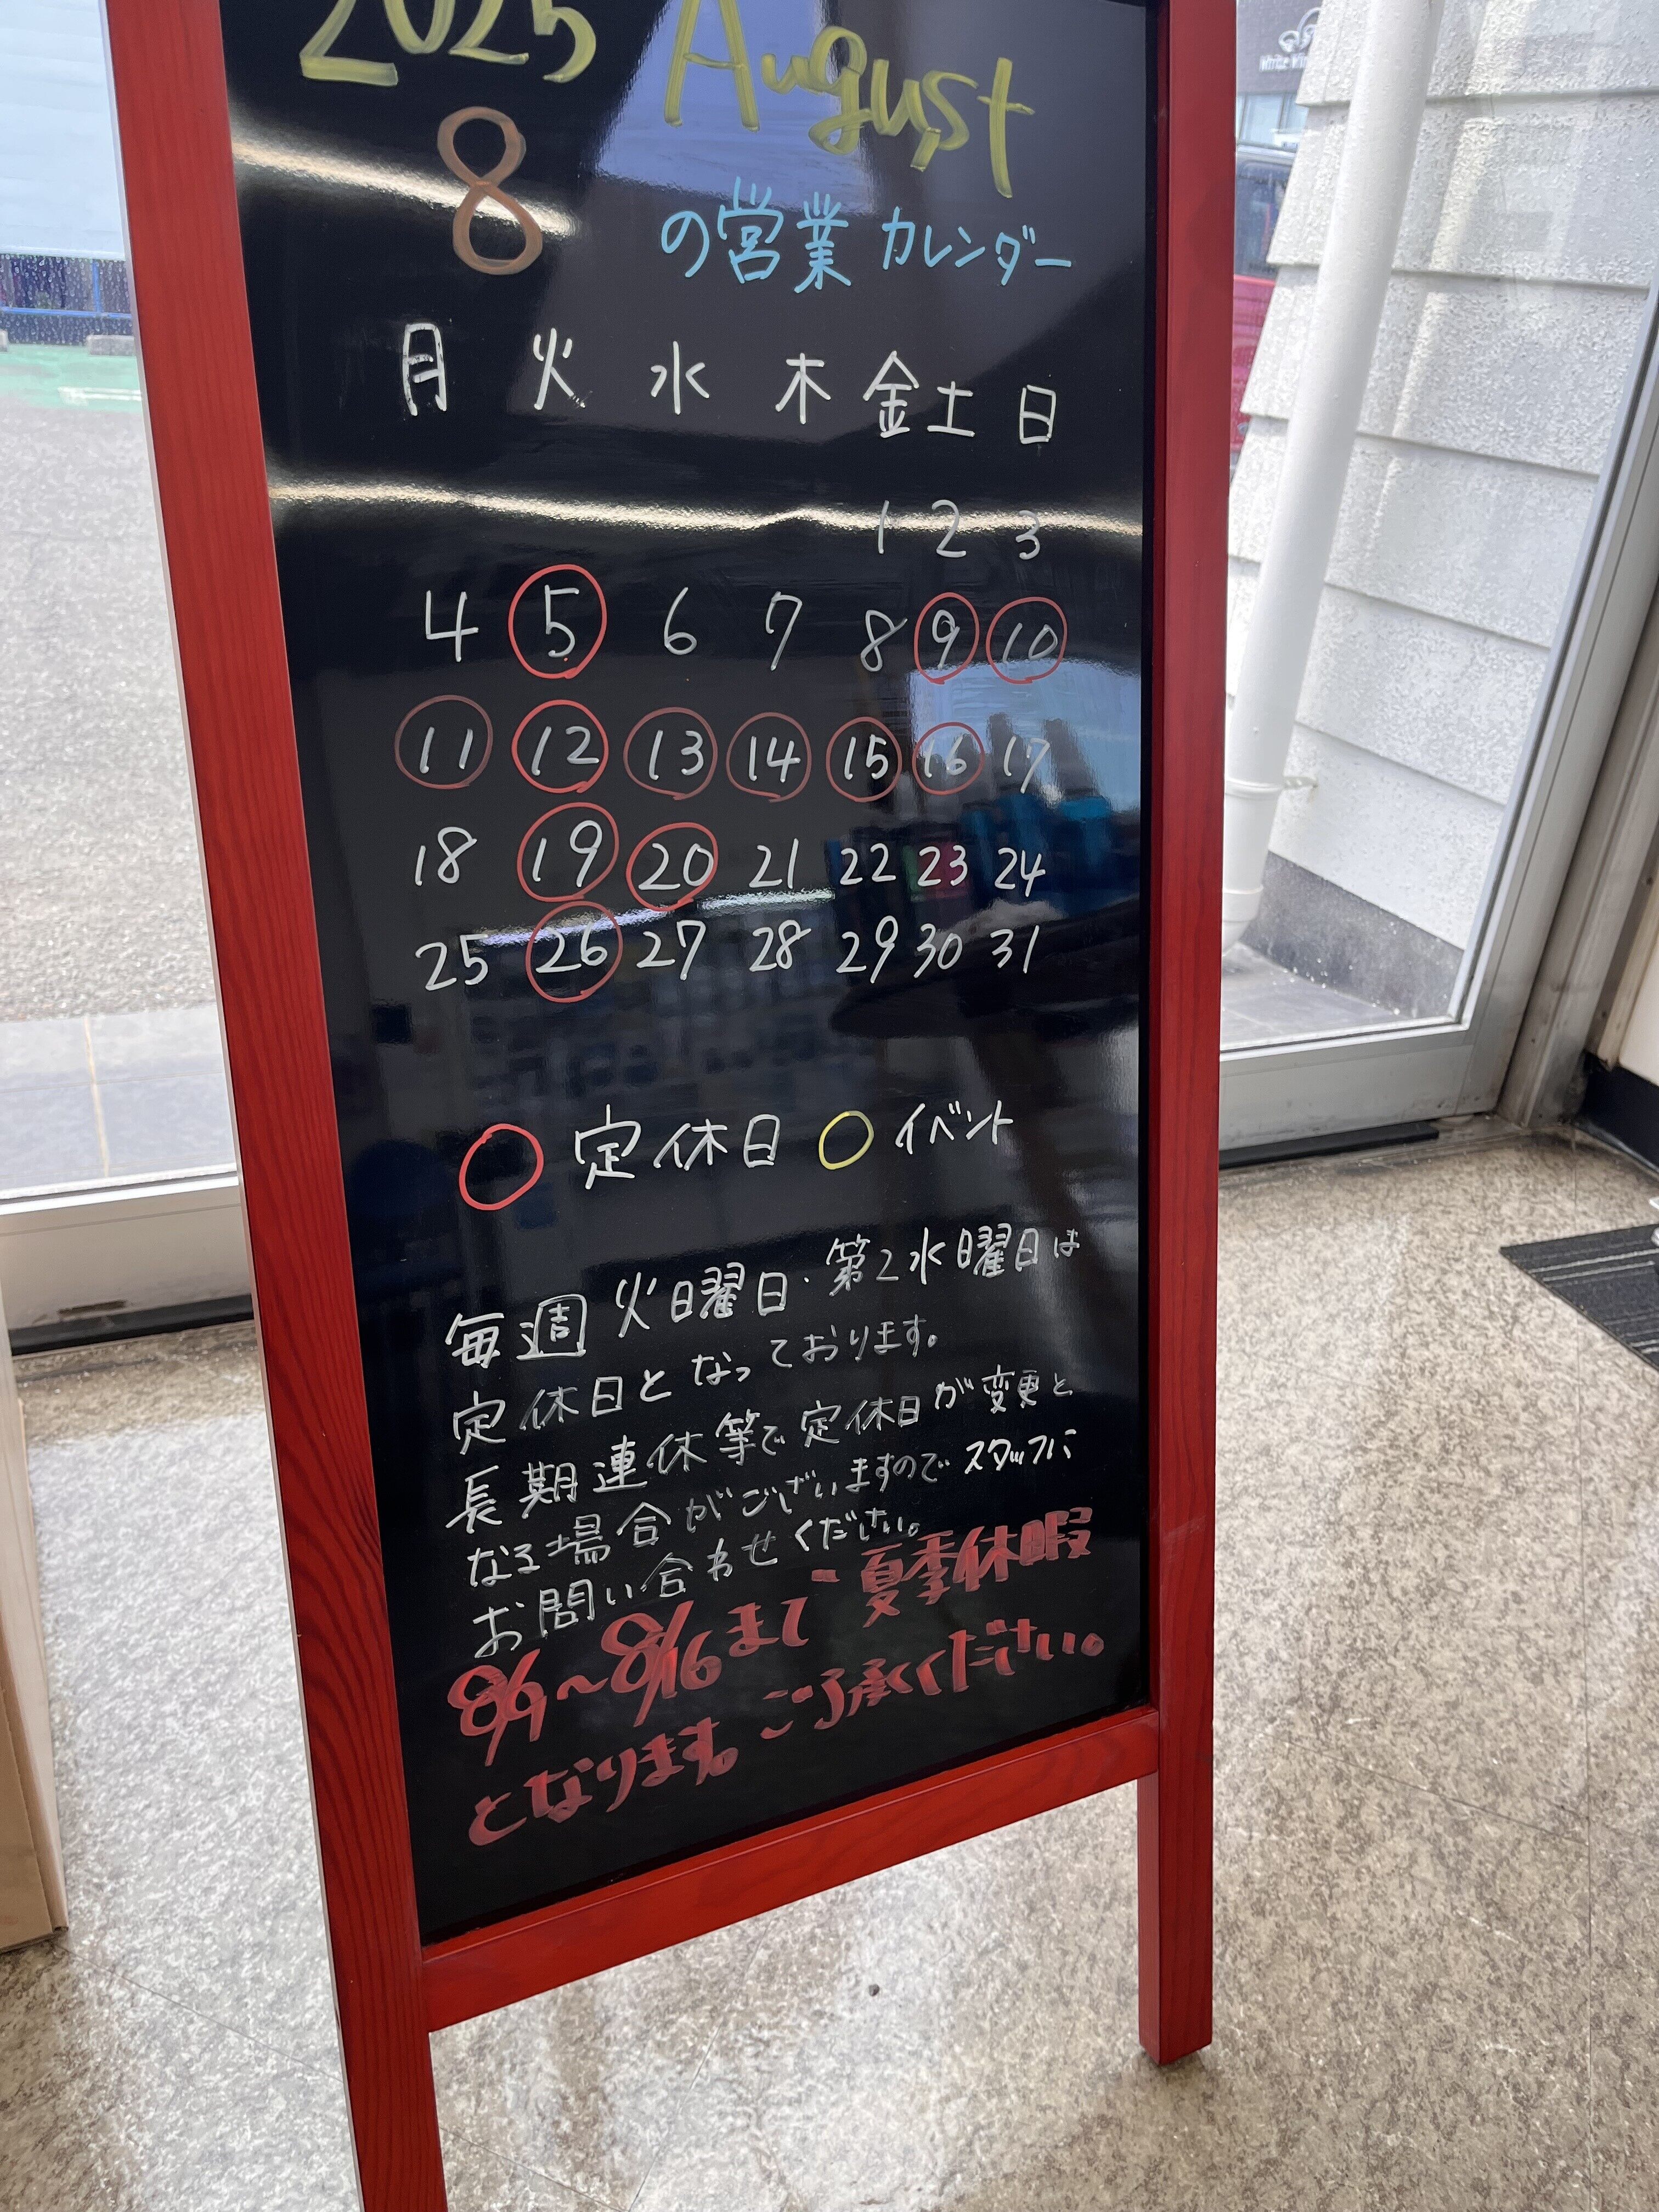 2025 August
8 の営業カレンダー
月 火 水 木 金 土 日
1 2 3
4 5 6 7 8 9 10
11 12 13 14 15 16 17
18 19 20 21 22 23 24
25 26 27 28 29 30 31
定休日 イベント
毎週火曜日・第2水曜日は
定休日となっております。
長期連休等で定休日が変更と
なる場合がございますのでスタッフに
お問い合わせください。
8/9〜8/16まで 夏季休暇
となります。ご了承ください。